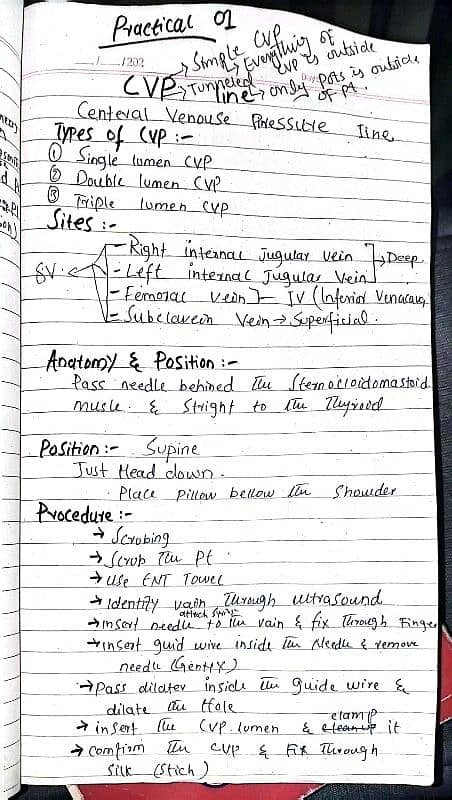 Practical 01
__/__/202
CVP → Simple CVP → Everything of CVP is outside
→ Tunneled line → only pots is outside of Pt.
Centeral Venouse Pressure line
Types of CVP :-
① Single lumen CVP
② Double lumen CVP
③ Triple lumen CVP
Sites :-
- Right internal Jugular vein
- Left internal Jugular Vein → Deep
SV.
- Femoral vein IV (Inferior Venacava)
- Subclaveen Vein → Superficial.
Anatomy & Position :-
Pass needle behined the Sternocloidomastoid
musle. & Stright to the Thyrood
Position :- Supine
Just Head down.
. Place Pillow bellow the Shoulder
Procedure :-
→ Scrobing
→ Scrub the Pt.
→ Use ENT Towel
→ Identify vain Through ultrasound
attach
→ insert needle to the vain & fix Through Finger
→ insert guid wire inside the Needle & remove
needle (Gently)
→ Pass dilater inside the guide wire &
dilate the Hole
clamp
→ insert the CVP lumen & cleanup it
→ comfirm the CVP & Fix Through
Silk (Stich)